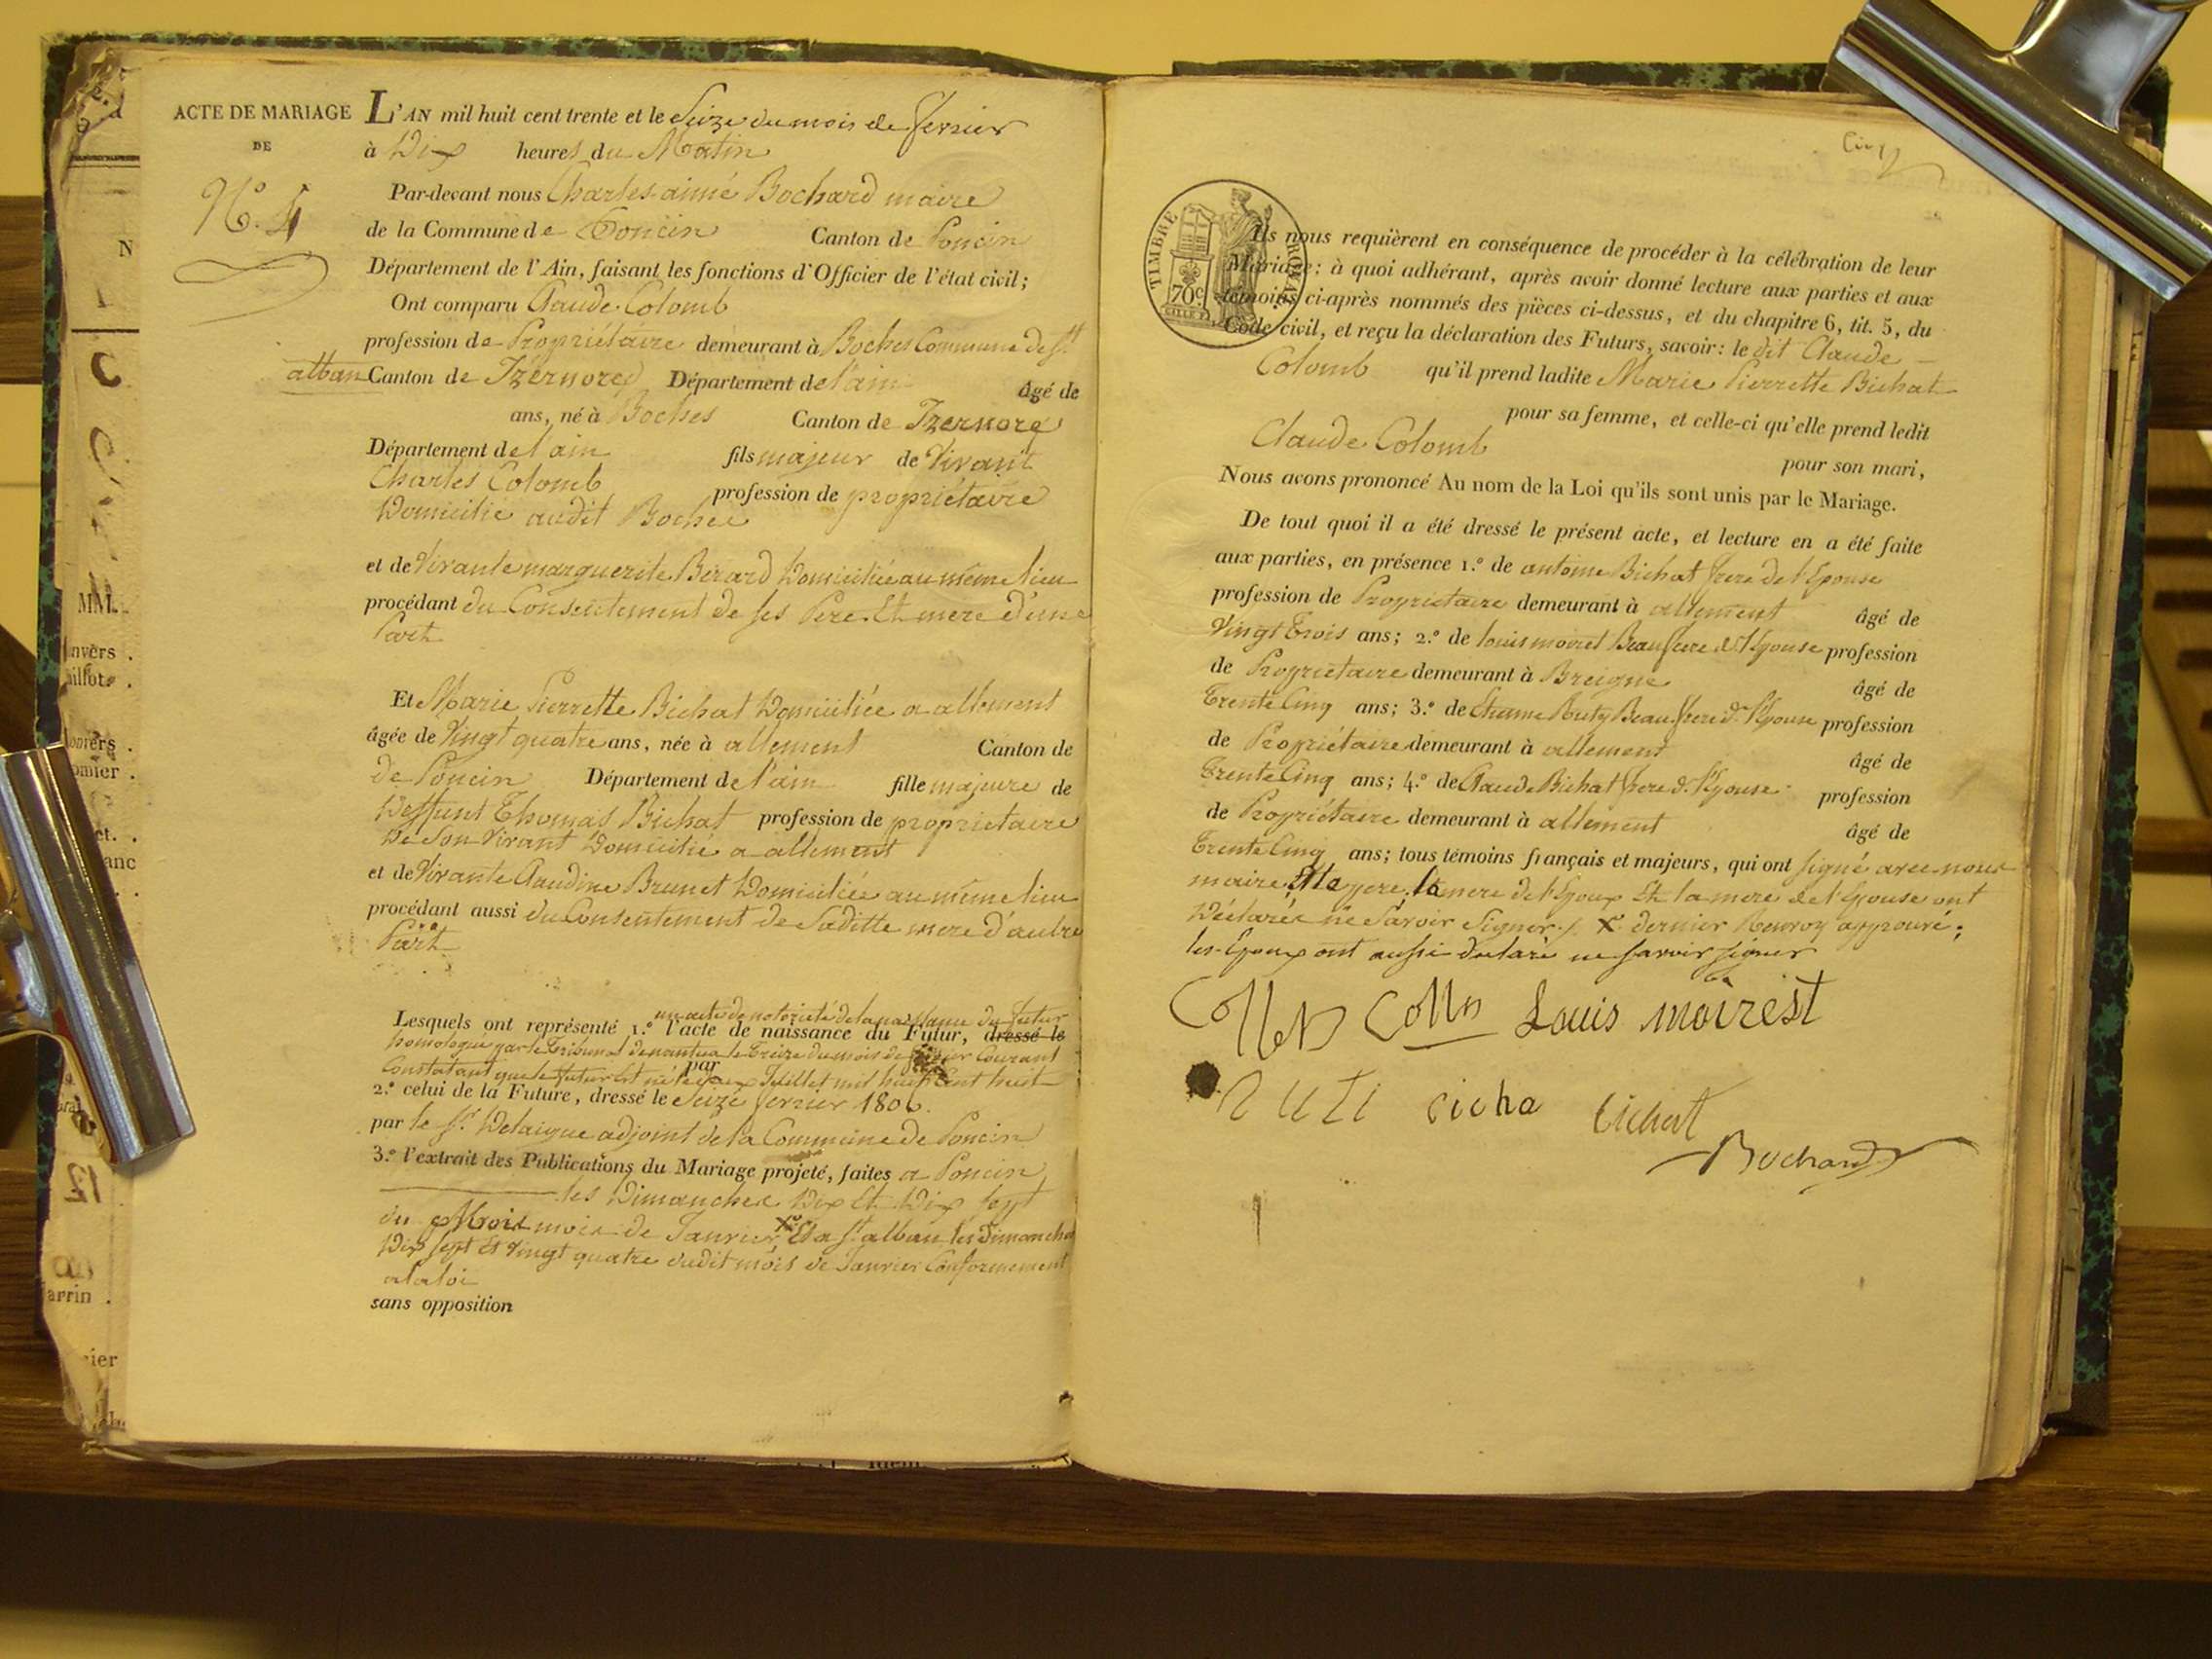 ACTE DE MARIAGE
DE
N.° 4
L'AN mil huit cent trente et le Seize du mois de fevrier
à Dix heures du Matin
Par-devant nous Charles aimé Bochard maire
de la Commune de Poncin Canton de Poncin
Département de l'Ain, faisant les fonctions d'Officier de l'état civil;
Ont comparu Claude Colomb
profession de Propriétaire demeurant à Boches Commune de St
alban Canton de Izernore Département de l'ain âgé de
ans, né à Boches Canton de Izernore
Département de l'ain fils majeur de Vivant
Charles Colomb profession de propriétaire
Domicilié audit Boches
et de Vivante marguerite Berard Domiciliée au même lieu
procédant du Consentement de ses Pere Et mere d'une
Part
Et Marie Pierrette Bichat Domiciliée a allement
âgée de Vingt quatre ans, née à allement Canton de
de Poncin Département de l'ain fille majeure de
Deffunt Thomas Bichat profession de propriétaire
De Son Vivant Domicilié a allement
et de Vivante Claudine Brunet Domiciliée au même lieu
procédant aussi du Consentement de Saditte mere d'autre
Part
un acte de notoriété de la naissance du futur
Lesquels ont représenté 1.° l'acte de naissance du Futur, dressé le
homologué par le Tribunal de nantua le Treize du mois de fevrier Courant
par
Constatant que le futur Est né le deux Juillet mil huit Cent huit
2.° celui de la Future, dressé le Seize fevrier 1806.
par le Sr. Delaigue adjoint de la Commune de Poncin
3.° l'extrait des Publications du Mariage projeté, faites a Poncin
les Dimanches Dix Et Dix Sept
du mois de Janvier X Et a St alban les Dimanche
Dix Sept Et Vingt quatre dudit mois de Janvier Conformement
a la loi
sans opposition
TIMBRE ROYAL
70c
Ils nous requièrent en conséquence de procéder à la célébration de leur
Mariage; à quoi adhérant, après avoir donné lecture aux parties et aux
témoins ci-après nommés des pièces ci-dessus, et du chapitre 6, tit. 5, du
Code civil, et reçu la déclaration des Futurs, savoir: le dit Claude
Colomb qu'il prend ladite Marie Pierrette Bichat
pour sa femme, et celle-ci qu'elle prend ledit
Claude Colomb
pour son mari,
Nous avons prononcé Au nom de la Loi qu'ils sont unis par le Mariage.
De tout quoi il a été dressé le présent acte, et lecture en a été faite
aux parties, en présence 1.° de antoine Bichat frere de l'Epouse
profession de Propriétaire demeurant à allement âgé de
Vingt Trois ans; 2.° de louis moiret Beaufrere d. l'Epouse profession
de Propriétaire demeurant à Breigne âgé de
Trente Cinq ans; 3.° de Etienne Ruty Beaufrere d. l'Epouse profession
de Propriétaire demeurant à allement âgé de
Trente Cinq ans; 4.° de Claude Bichat frere d. l'Epouse profession
de Propriétaire demeurant à allement âgé de
Trente Cinq ans; tous témoins français et majeurs, qui ont signé avec nous
maire Et le pere. la mere de l'Epoux Et la mere de l'Epouse ont
Déclarés ne Savoir Signer. X dernier Renvoy approuvé;
les Epoux ont aussi declaré ne savoir signer
Louis moirest
Ruti Bicha Bichat
Bochard